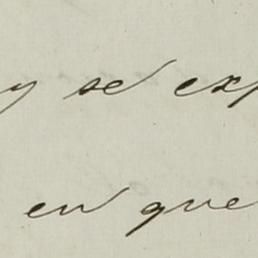 y se exp
en que